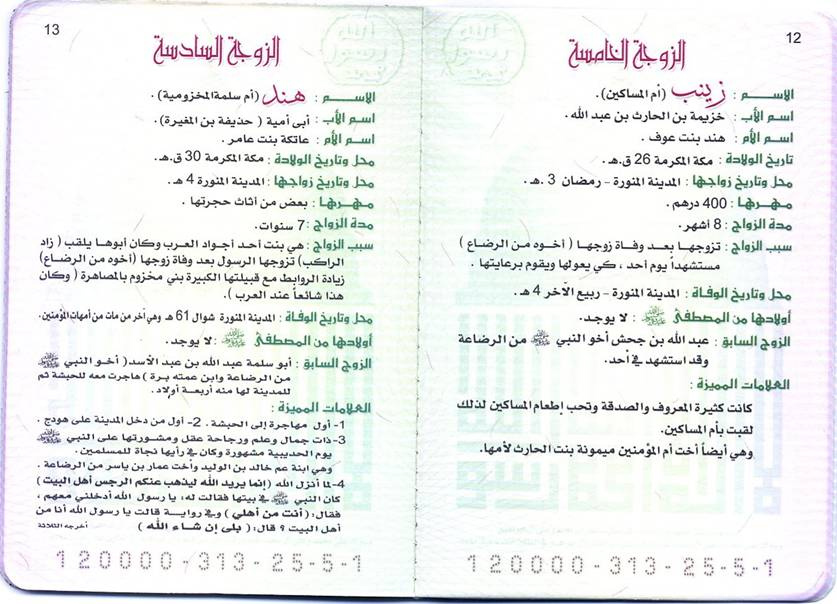 12
الزوجة الخامسة
الاســـم : زينب (أم المساكين).
اسم الأب : خزيمة بن الحارث بن عبد الله.
اسم الأم : هند بنت عوف.
تاريخ الولادة : مكة المكرمة 26 ق.هـ.
محل وتاريخ زواجها : المدينة المنورة - رمضان 3 .هـ.
مـهـرهـا : 400 درهم .
مدة الزواج : 8 أشهر.
سبب الزواج : تزوجها بعد وفاة زوجها ( أخوه من الرضاع )
مستشهداً يوم أحد ، كي يعولها ويقوم برعايتها .
محل وتاريخ الوفاة : المدينة المنورة - ربيع الآخر 4 هـ.
أولادها من المصطفى ﷺ : لا يوجد.
الزوج السابق : عبد الله بن جحش أخو النبي ﷺ من الرضاعة
وقد استشهد في أحد.
العلامات المميزة :
كانت كثيرة المعروف والصدقة وتحب إطعام المساكين لذلك
لقبت بأم المساكين.
وهي أيضاً أخت أم المؤمنين ميمونة بنت الحارث لأمها.
120000-313-25-5-1
13
الزوجة السادسة
الاســـم : هند (أم سلمة المخزومية) .
اسم الأب : أبى أمية ( حذيفة بن المغيرة).
اسم الأم : عاتكة بنت عامر .
محل وتاريخ الولادة : مكة المكرمة 30 ق.هـ.
محل وتاريخ زواجها : المدينة المنورة 4 هـ .
مـهـرهـا : بعض من أثاث حجرتها .
مدة الزواج : 7 سنوات.
سبب الزواج : هي بنت أحد أجواد العرب وكان أبوها يلقب ( زاد
الراكب) تزوجها الرسول بعد وفاة زوجها (أخوه من الرضاع)
زيادة الروابط مع قبيلتها الكبيرة بني مخزوم بالمصاهرة ( وكان
هذا شائعاً عند العرب ).
محل وتاريخ الوفاة : المدينة المنورة شوال 61 هـ وهي آخر من مات من أمهات المؤمنين.
أولادها من المصطفى ﷺ : لا يوجد.
الزوج السابق : أبو سلمة عبد الله بن عبد الأسد ( أخو النبي ﷺ
من الرضاعة وابن عمته برة ) هاجرت معه للحبشة ثم
للمدينة لها منه أربعة أولاد .
العلامات المميزة :
1- أول مهاجرة إلى الحبشة . 2- أول من دخل المدينة على هودج .
3- ذات جمال وعلم ورجاحة عقل ومشورتها على النبي ﷺ
يوم الحديبية مشهورة وكان في رأيها نجاة للمسلمين .
وهي ابنة عم خالد بن الوليد وأخت عمار بن ياسر من الرضاعة .
4- لما أنزل الله (إنما يريد الله ليذهب عنكم الرجس أهل البيت )
كان النبي ﷺ في بيتها فقالت له: يا رسول الله أدخلني معهم ،
فقال: (أنت من أهلي ) وفي رواية قالت يا رسول الله أنا من
أهل البيت ؟ قال: ( بلى إن شاء الله ) أخرجه الثلاثة
120000-313-25-5-1